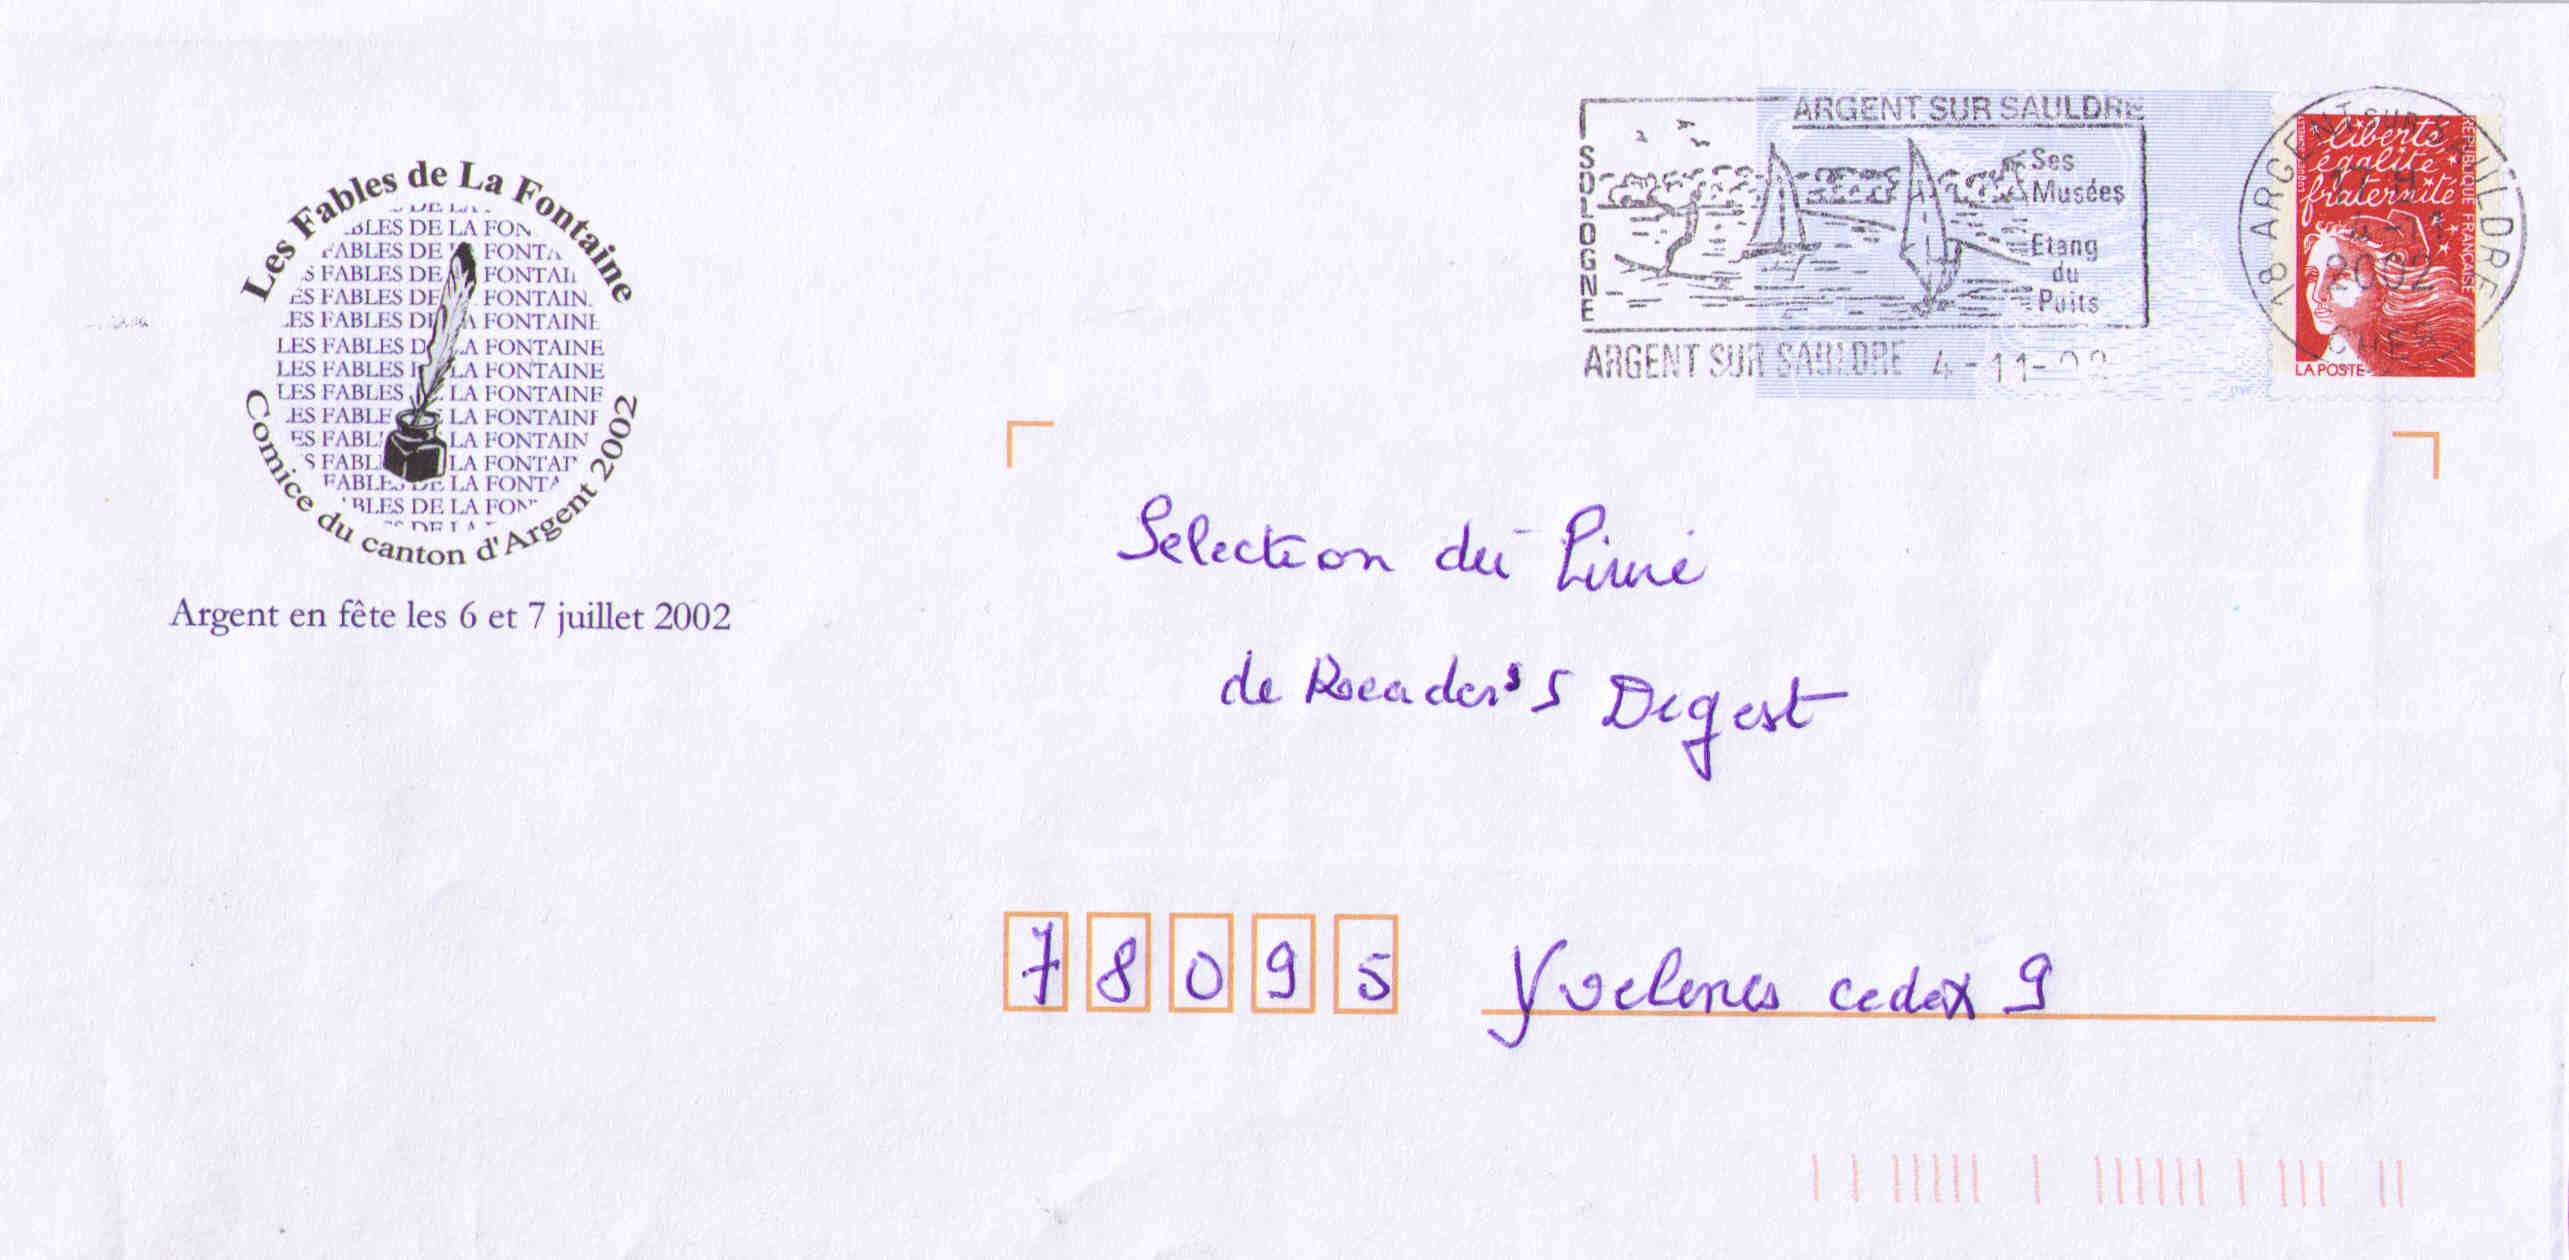 Les Fables de La Fontaine
DE LA
BLES DE LA FON
FABLES DE LA FONTA
S FABLES DE LA FONTAI
ES FABLES DE FONTAIN
LES FABLES DE LA FONTAINE
LES FABLES D LA FONTAINE
LES FABLES LA FONTAINE
LES FABLES LA FONTAINE
ES FABLE LA FONTAINE
ES FABL LA FONTAIN
S FABL LA FONTAI
FABLES DE LA FONTA
BLES DE LA FON
DE LA
Comice du canton d'Argent 2002
Argent en fête les 6 et 7 juillet 2002
ARGENT SUR SAULDRE
SOLOGNE
Ses
Musées
Etang
du
Puits
ARGENT SUR SAULDRE 4-11-02
18 ARGENT SUR SAULDRE
2002
CHER
liberté
égalité
fraternité
RÉPUBLIQUE FRANÇAISE
LA POSTE
Selection du Livre
de Reader's Digest
78095 Yvelines cedex 9